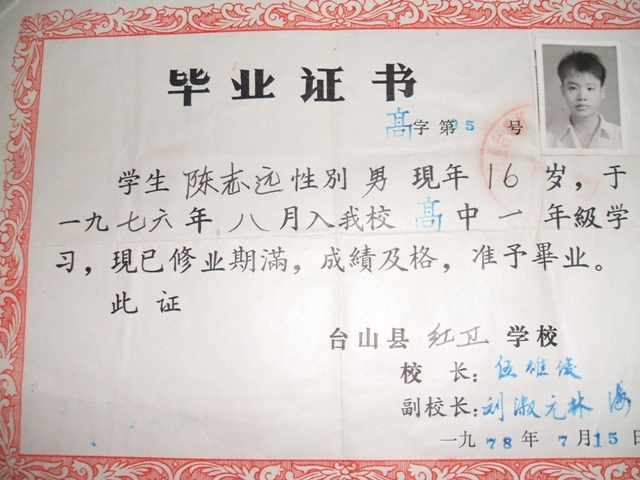 毕业证书
高字第95号
学生 陈志远 性别 男 现年 16 岁，于
一九七六年八月入我校 高中一 年級学
习，現已修业期滿，成績及格，准予畢业。
此证
台山县 红卫 学校
校 长：伍雄俊
副校长：刘淑元 林
一九78年7月15日